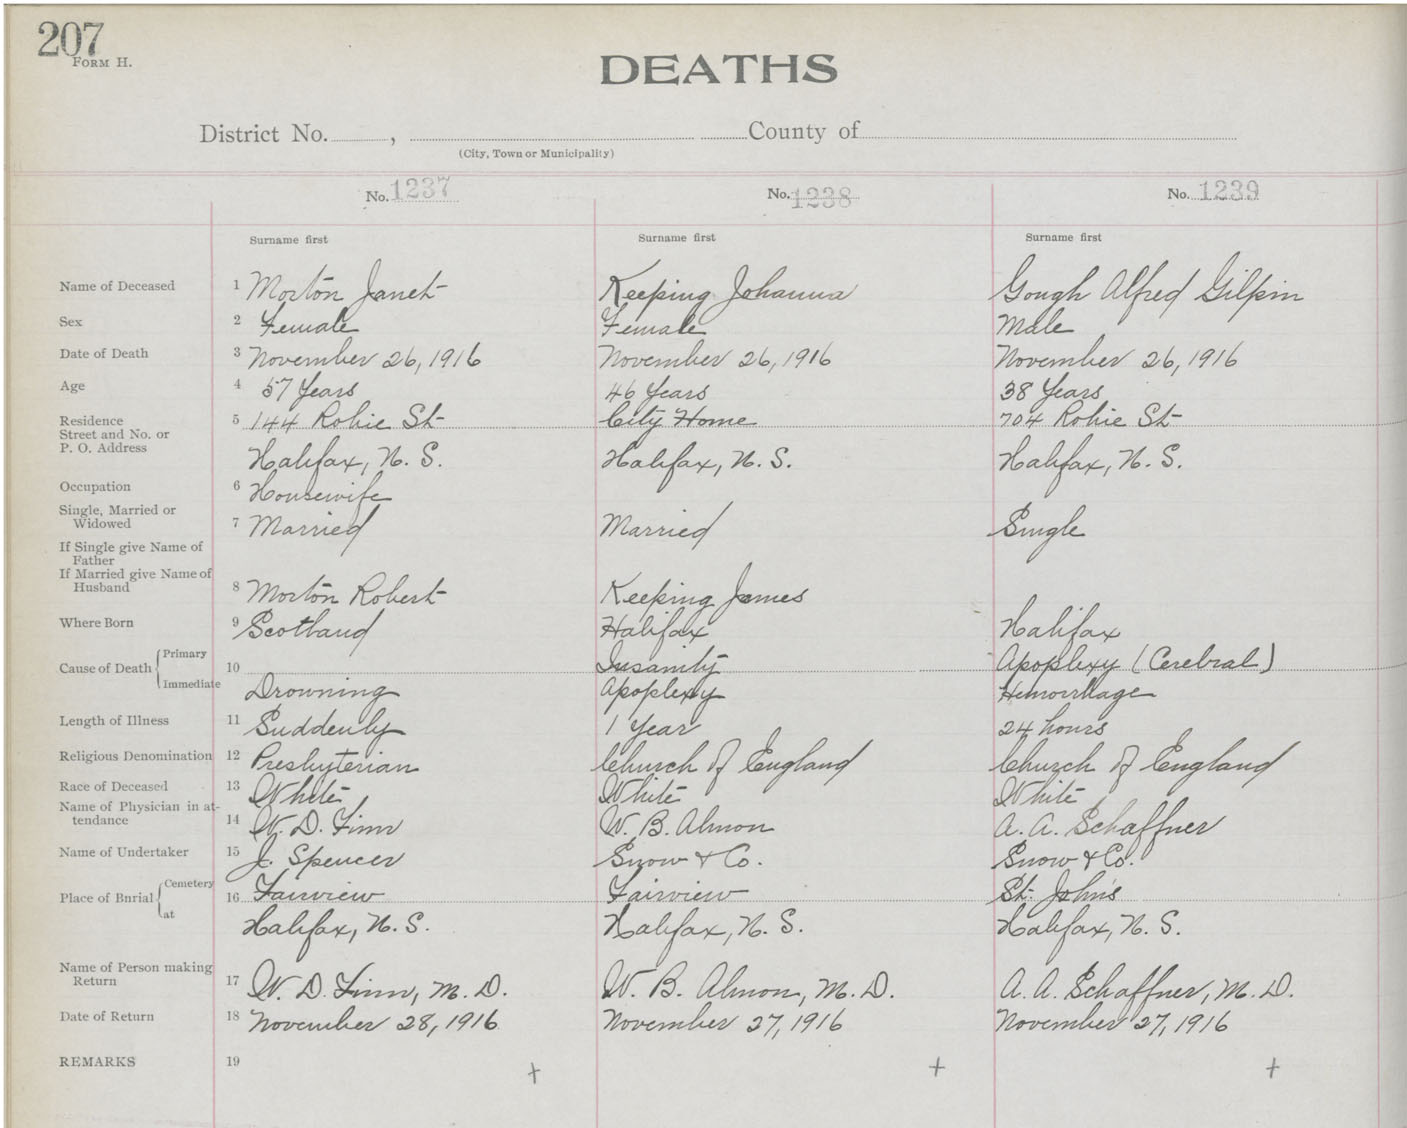 207
FORM H.
DEATHS
District No. , County of
(City, Town or Municipality)
No. 1237 No. 1238 No. 1239
Surname first Surname first Surname first
Name of Deceased 1 Morton Janet Keeping Johanna Gough Alfred Gilpin
Sex 2 Female Female Male
Date of Death 3 November 26, 1916 November 26, 1916 November 26, 1916
Age 4 57 Years 46 Years 38 Years
Residence 5 144 Robie St City Home 704 Robie St
Street and No. or
P. O. Address Halifax, N. S. Halifax, N. S. Halifax, N. S.
Occupation 6 Housewife
Single, Married or
Widowed 7 Married Married Single
If Single give Name of
Father
If Married give Name of
Husband 8 Morton Robert Keeping James
Where Born 9 Scotland Halifax Halifax
Cause of Death { Primary 10 Insanity Apoplexy (Cerebral)
Immediate Drowning Apoplexy Hemorrhage
Length of Illness 11 Suddenly 1 Year 24 hours
Religious Denomination 12 Presbyterian Church of England Church of England
Race of Deceased 13 White White White
Name of Physician in at-
tendance 14 W. D. Finn W. B. Almon A. A. Schaffner
Name of Undertaker 15 J. Spencer Snow & Co. Snow & Co.
Place of Bnrial { Cemetery 16 Fairview Fairview St. John's
at Halifax, N. S. Halifax, N. S. Halifax, N. S.
Name of Person making
Return 17 W. D. Finn, M. D. W. B. Almon, M. D. A. A. Schaffner, M. D.
Date of Return 18 November 28, 1916 November 27, 1916 November 27, 1916
REMARKS 19 + + +